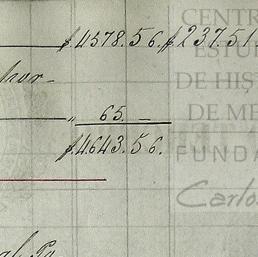 $4578.56. $237.51
" 65. —
$4.643.56.
CENTR
ESTU
DE HIS
DE ME
FUND
Carlos